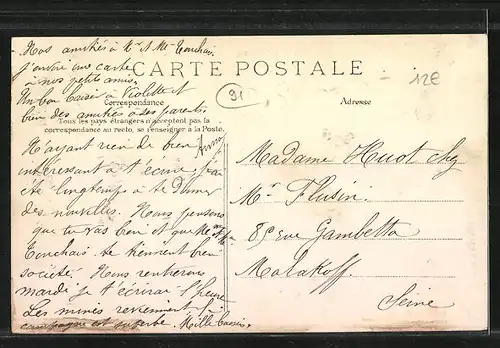 Nos amitiés à Mr et Mme Tonchais
J'envoie une carte
à nos petits amis.
CARTE POSTALE
Un bon baiser à Violette et
bien des amitiés à ses parents.
91
12E
Correspondance
Adresse
Tous les pays étrangers n'acceptent pas la
correspondance au recto, se renseigner à la Poste.
N'ayant rien de bien
intéressant à t'écrire, j'ai
été longtemps à te donner
des nouvelles. Nous pensons
que tu vas bien et que Mr et Mme
Tonchais te tiennent bien
société. Nous rentrerons
mardi je t'écrirai l'heure
Les mines reviennent
campagne est superbe. Mille baisers.
Madame Huot chez
Mr Flusin
89 rue Gambetta
Malakoff
Seine